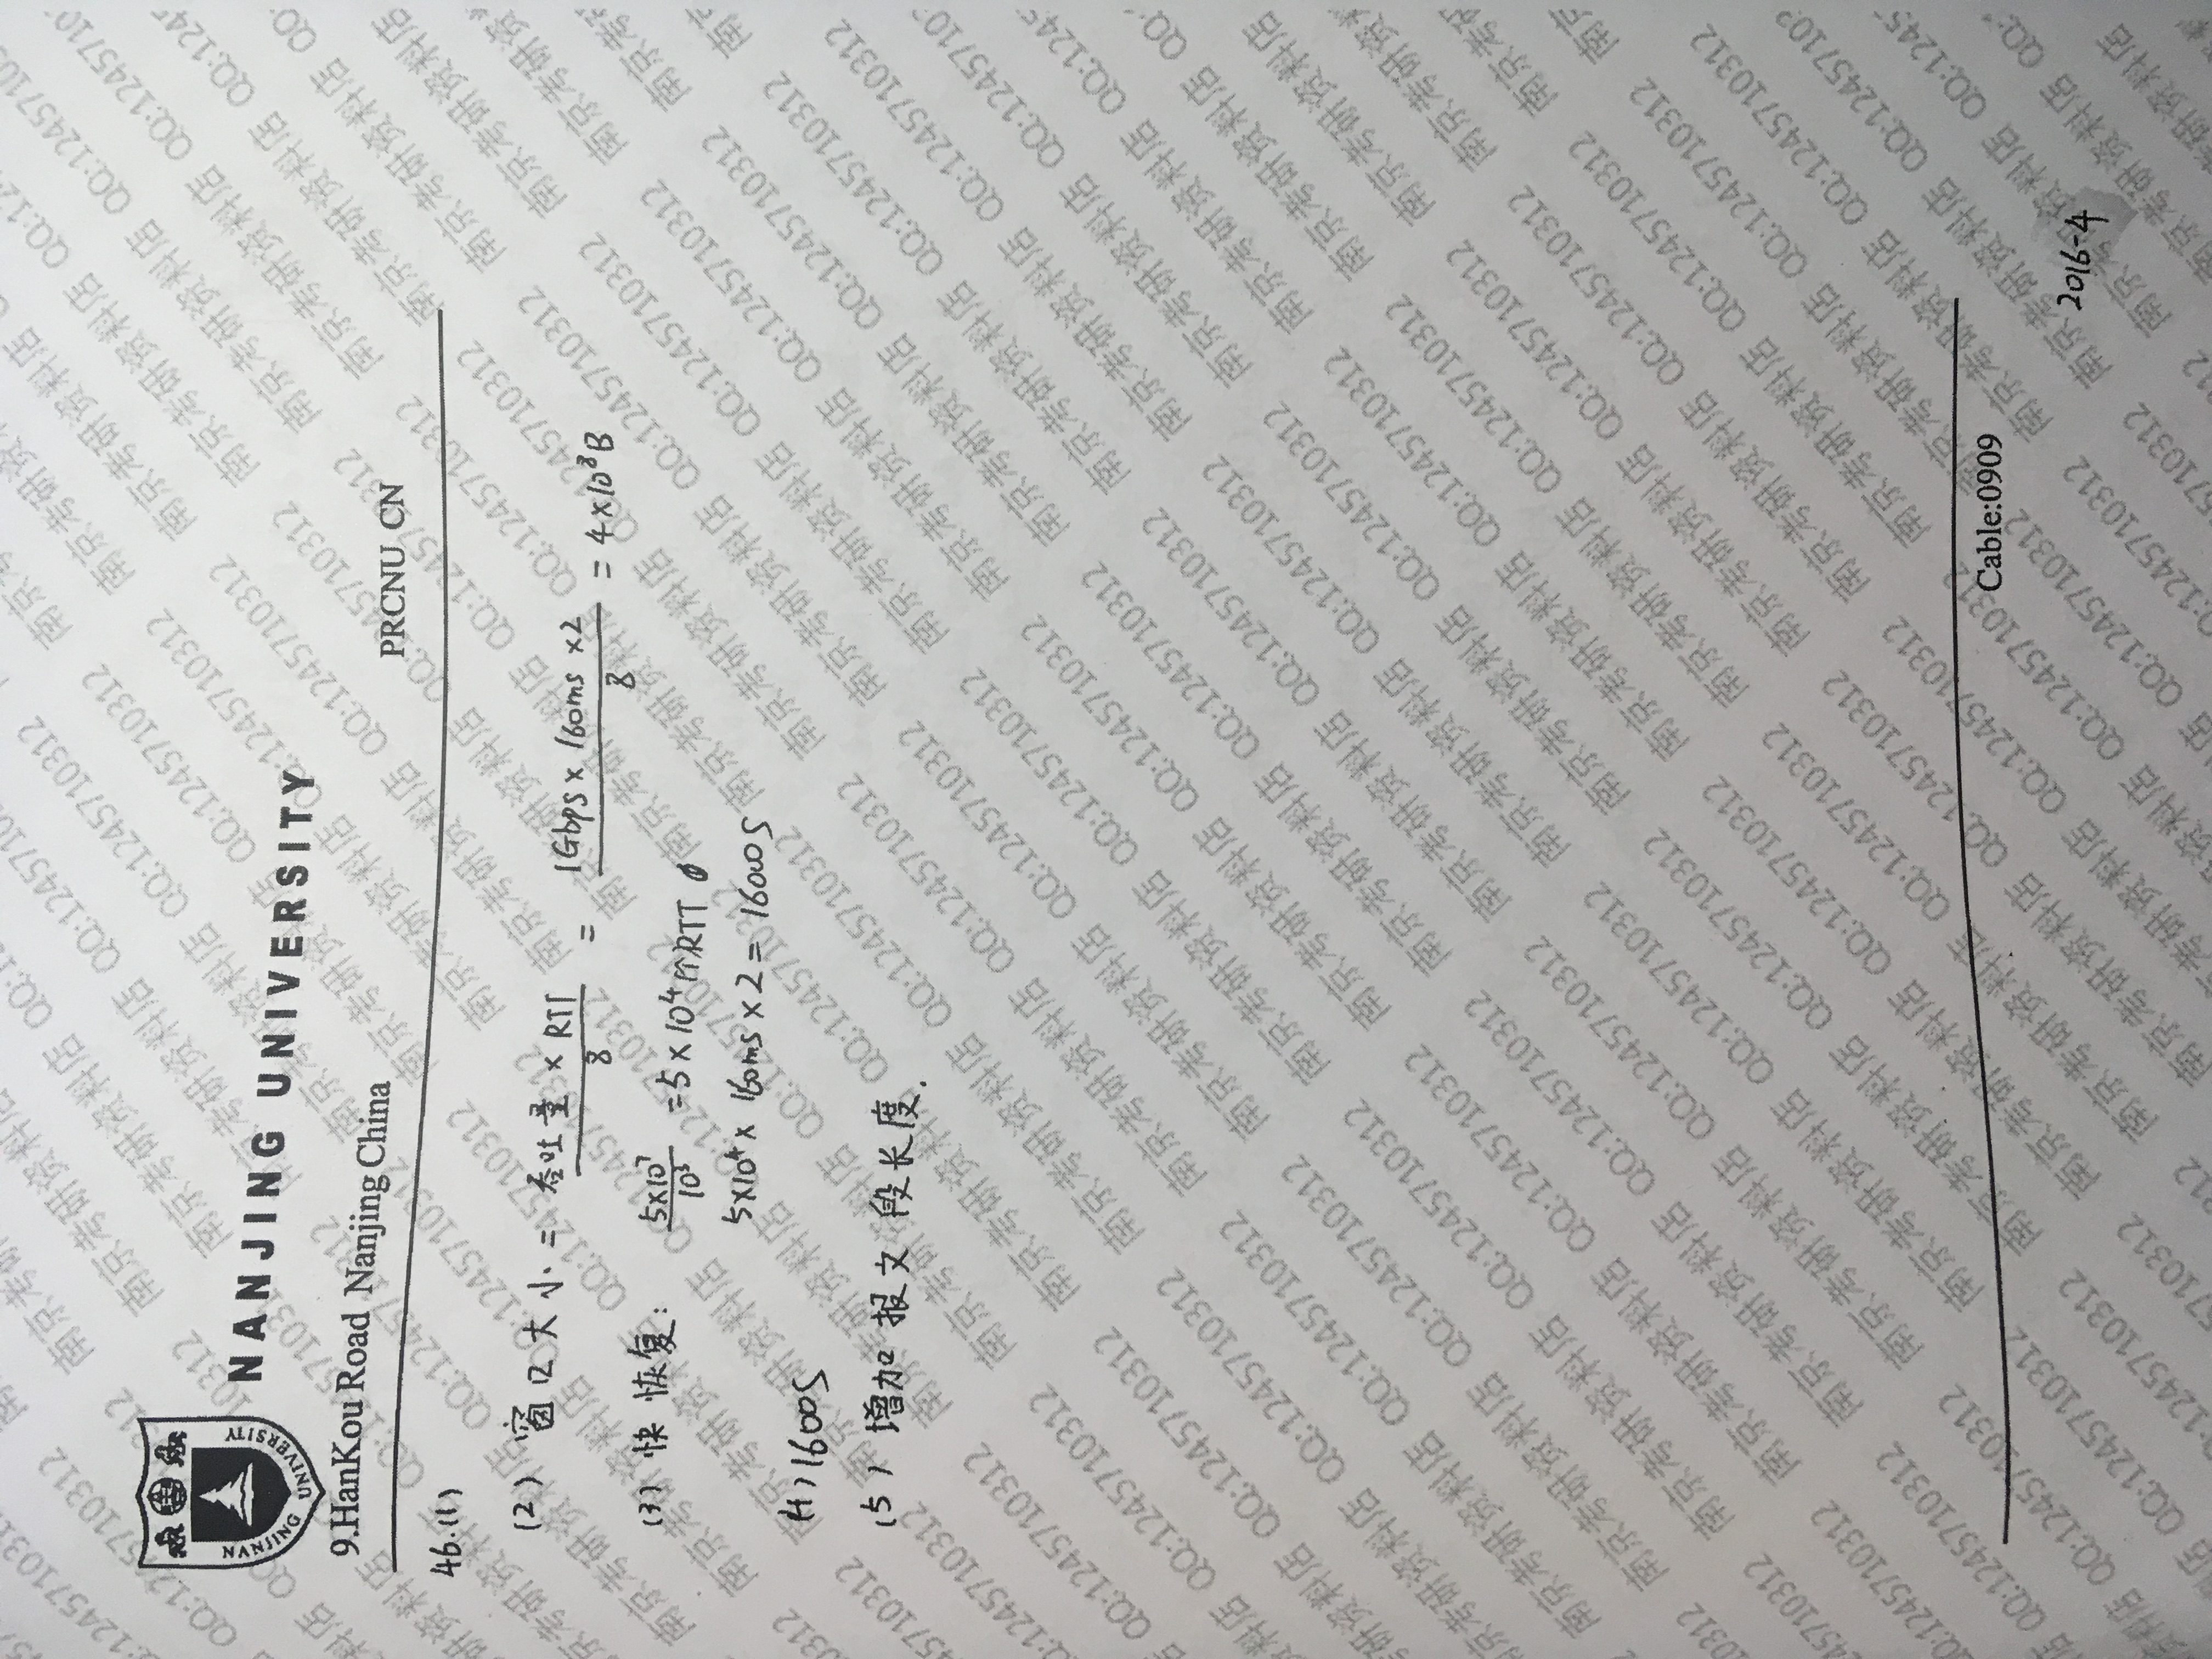 NANJING UNIVERSITY
NANJING UNIVERSITY
9.HanKou Road Nanjing China
PRCNU CN
46.(1)
(2) 窗口大小 = 吞吐量 × RTT / 8 = 1Gbps × 160ms × 2 / 8 = 4×10³B
(3) 快恢复: 5×10⁷ / 10³ = 5×10⁴个RTT
5×10⁴ × 160ms × 2 = 16000S
(4) 1600S
(5) 增加报文段长度.
Cable:0909
2016-4
南京考研资料店 QQ:1245710312